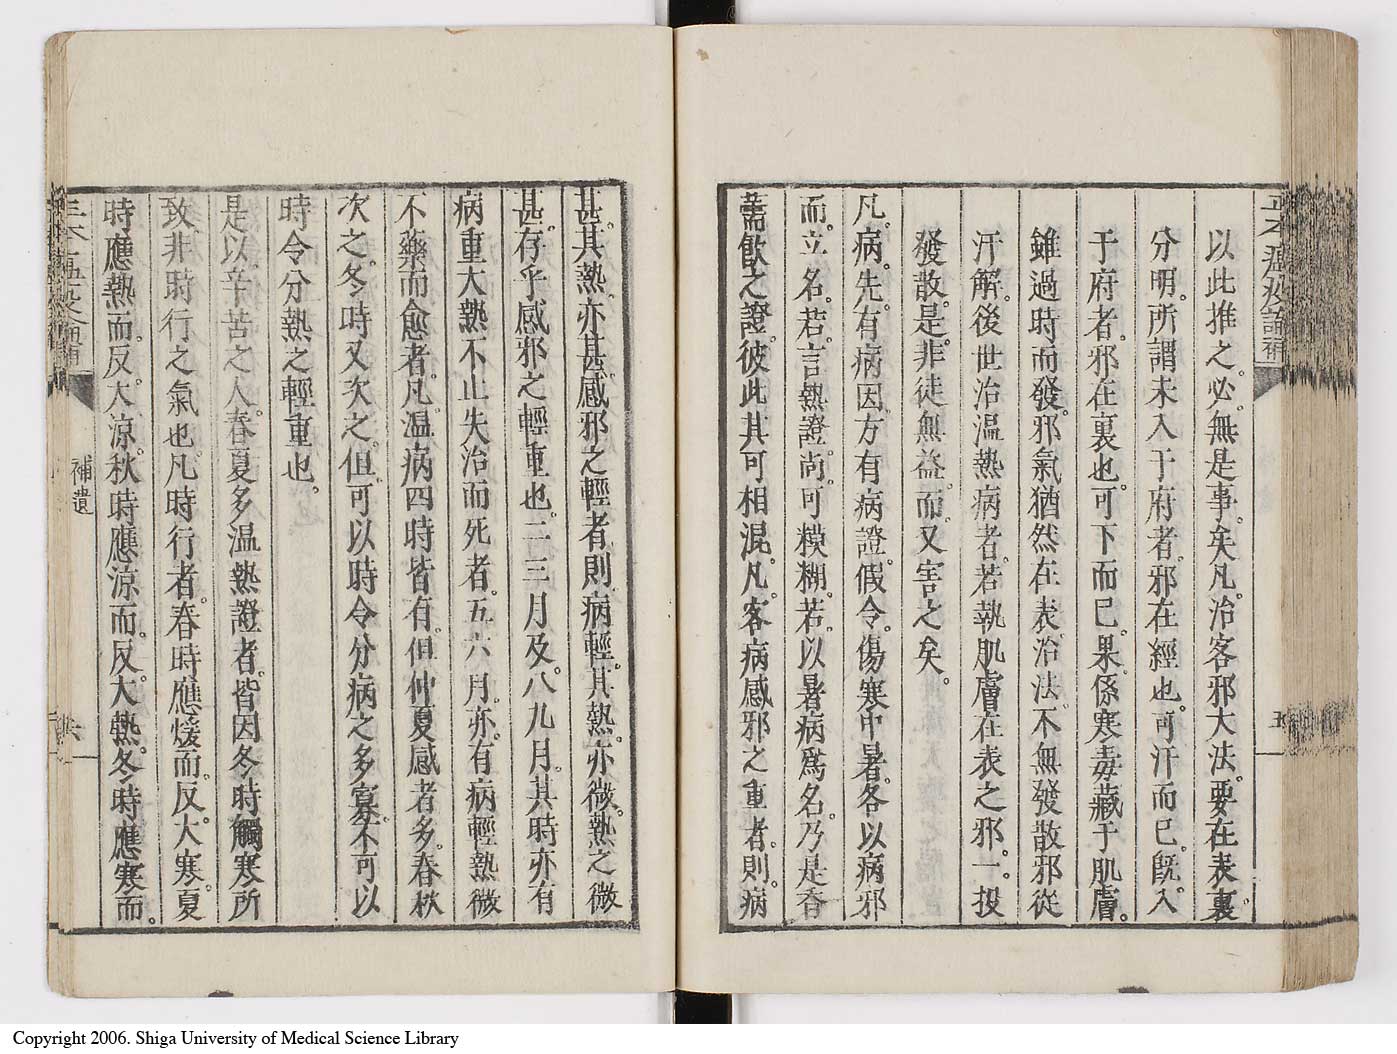 以此推之。必無是事矣。凡治客邪大法。要在表裏
分明。所謂未入于府者。邪在經也。可汗而已。旣入
于府者。邪在裏也。可下而已。果係寒毒藏于肌膚。
雖過時而發。邪氣猶然在表。治法不無發散。邪從
汗解。後世治溫熱病者。若執肌膚在表之邪。一投
發散。是非徒無益。而又害之矣。
凡病先有病因。方有病證。假令傷寒中暑。各以病邪
而立名。若言熱證。尚可模糊。若以暑病爲名。乃是香
薷飮之證。彼此其可相混。凡客病感邪之重者則病
甚。其熱亦甚。感邪之輕者則病輕。其熱亦微。熱之微
甚。存乎感邪之輕重也。二三月及八九月。其時亦有
病重大熱不止失治而死者。五六月亦有病輕熱微
不藥而愈者。凡溫病四時皆有。但仲夏感者多。春秋
次之。冬時又次之。但可以時令分病之多寡。不可以
時令分熱之輕重也。
是以辛苦之人。春夏多温熱證者。皆因冬時觸寒所
致。非時行之氣也。凡時行者。春時應煖而反大寒。夏
時應熱而反大涼。秋時應涼而反大熱。冬時應寒而
補遺